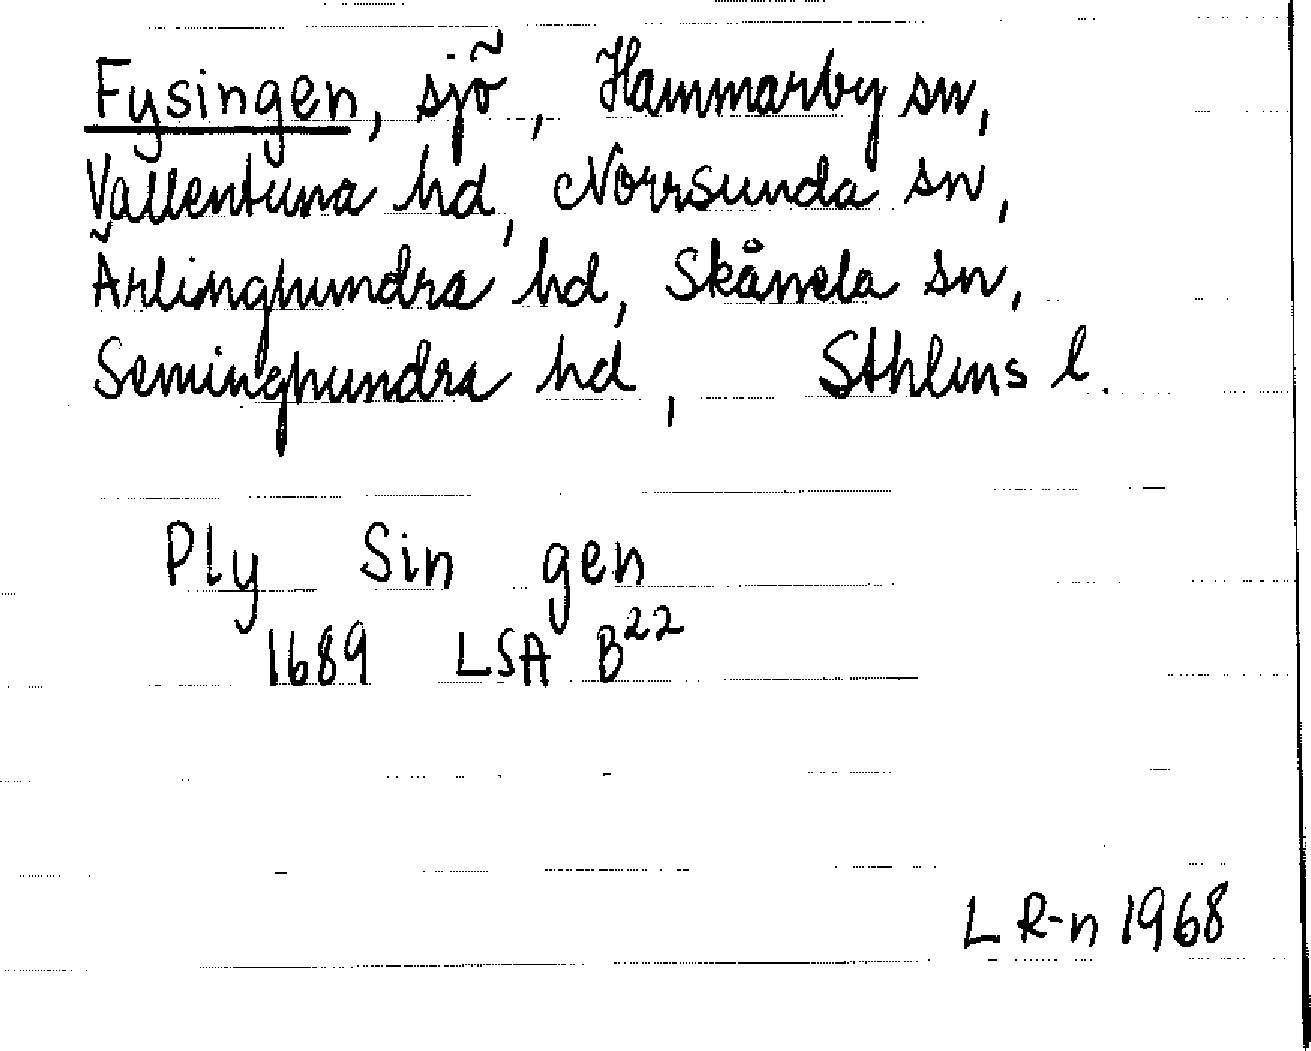 Fysingen, sjö, Hammarby sn,
Vallentuna hd, Norrsunda sn,
Ärlinghundra hd, Skånela sn,
Seminghundra hd, Sthlms l.
Ply Sin gen
1689 LSA B22
L R-n 1968